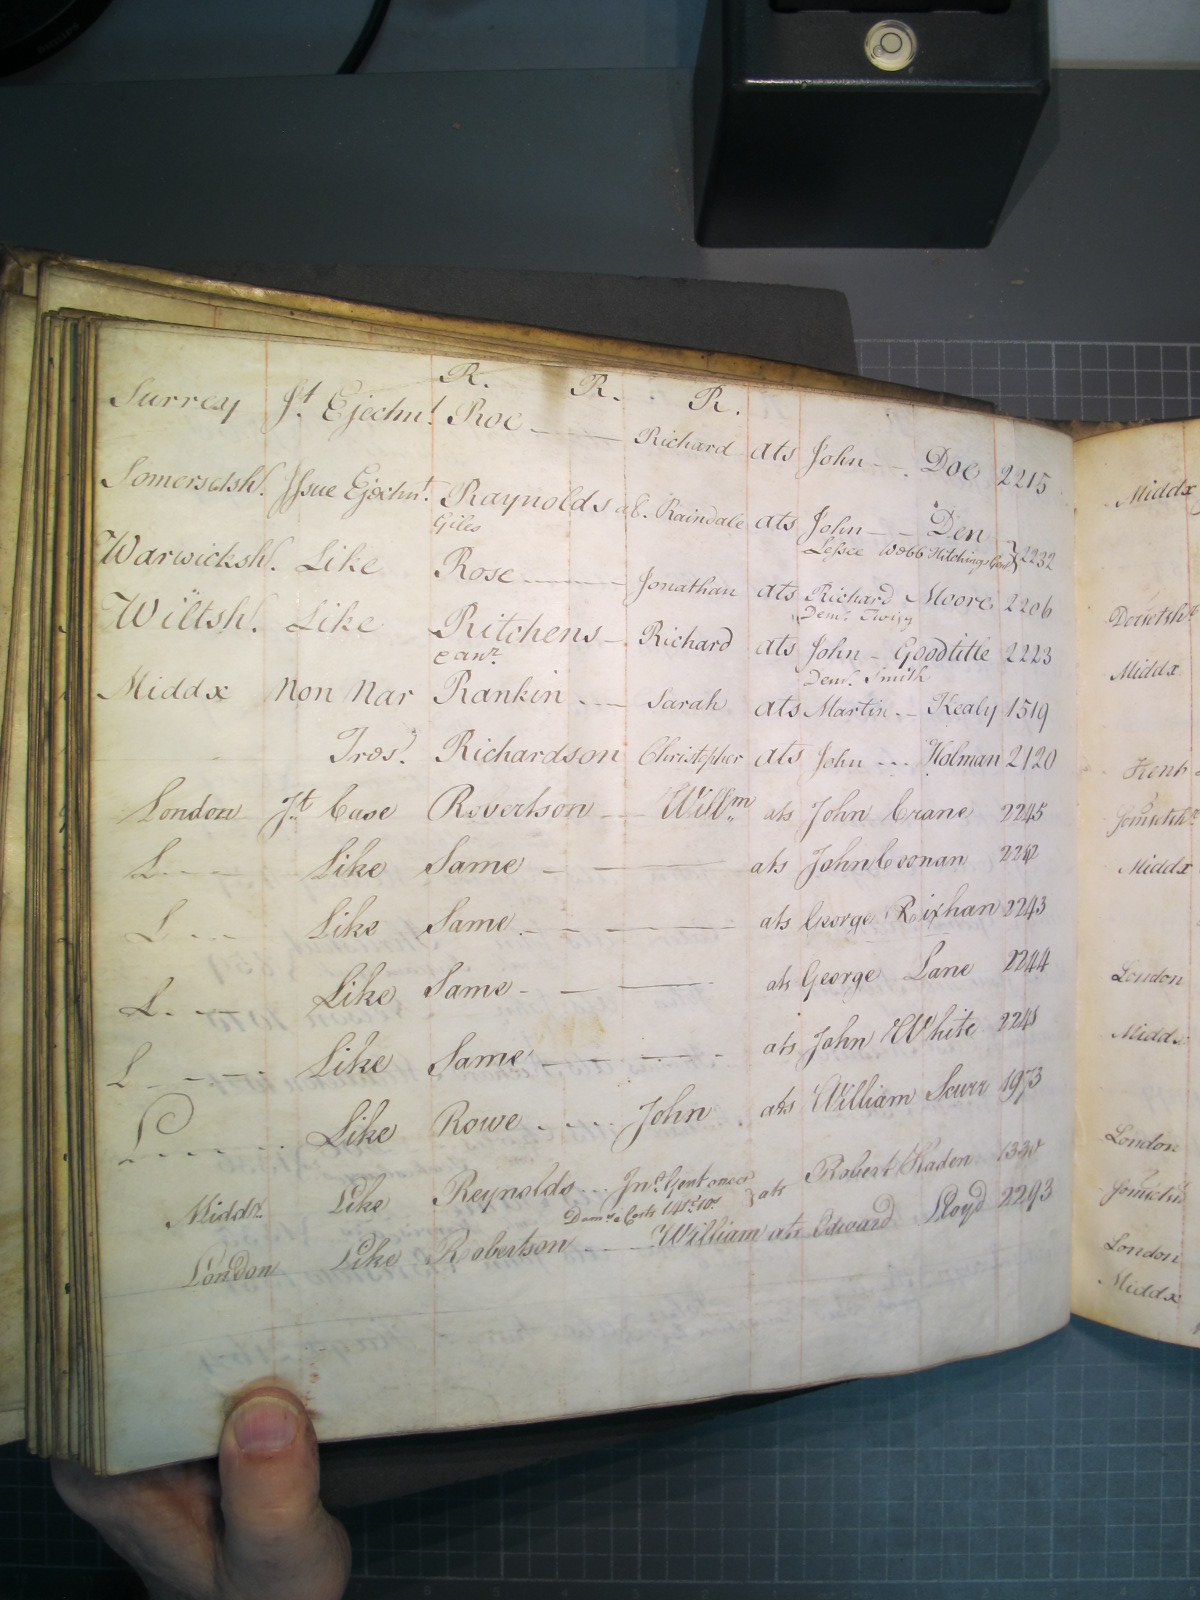 R. R. R.
Surrey Jt. Ejectmt. Roe Richard ats John Doe 2215
Somersetsh. Issue Ejectmt. Raynolds ab. Raindale ats John Den
Giles Lessee Webb Hitchings Gent 2232
Warwicksh. Like Rose Jonathan ats Richard Moore 2206
Demr. Twisy
Wiltsh. Like Ritchens Richard ats John Goodtitle 2223
Demr. Smith
Middx Non Nar Rankin Sarah ats Martin Kealy 1519
Tros. Richardson Christopher ats John Holman 2120
London Jt. Case Rovertson Willm ats John Crane 2245
L Like Same ats John Coonan 2242
L Like Same ats George Rixhan 2243
L Like Same ats George Lane 2244
L Like Same ats John White 2241
L Like Rowe John ats William Scurr 1973
Middx. Like Reynolds Jno. Gent ats Robert
London Like Robertson William ats Edward Lloyd 2293
Middx
Dorsetshr
Middx
Kent
Middx
London
Middx
London
London
Middx